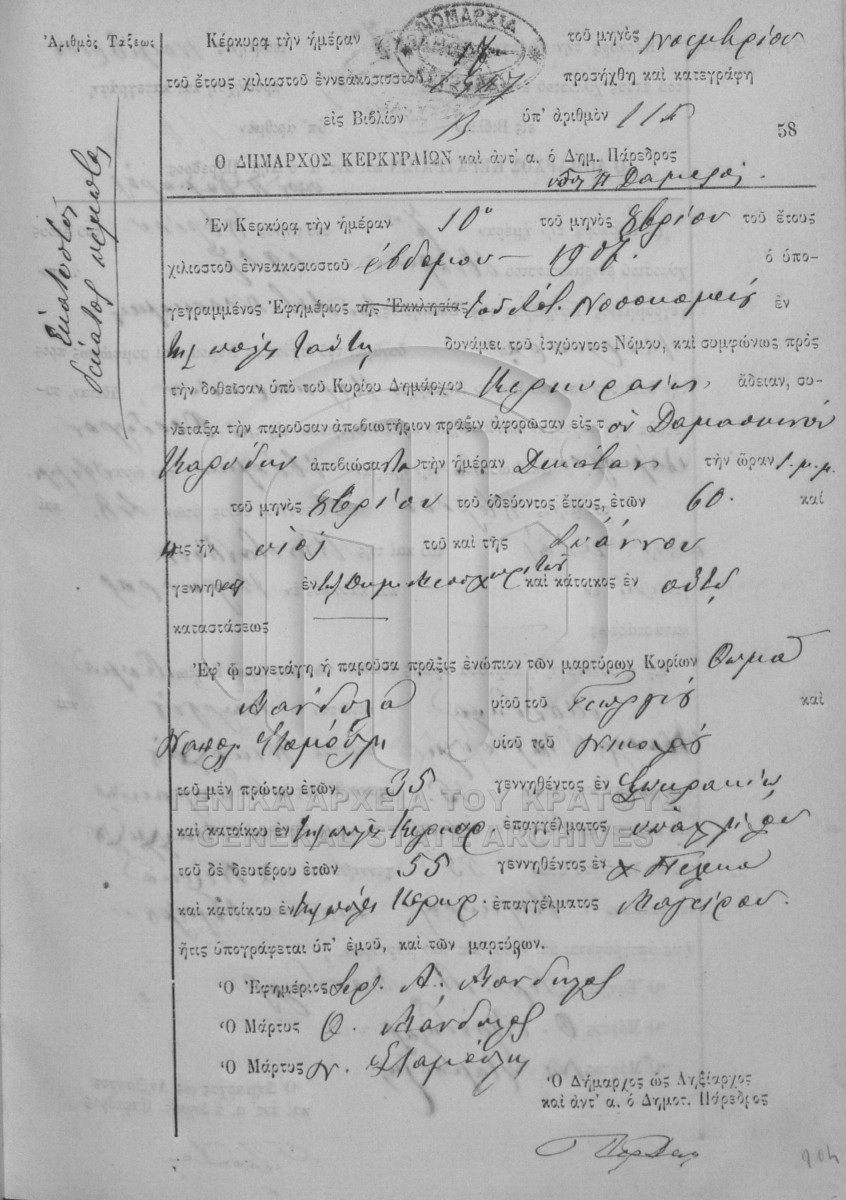 Ἀριθμὸς Τάξεως
Ἑκατοστὸς δέκατος πέμπτος
ΝΟΜΑΡΧΙΑ
Κέρκυρα τὴν ἡμέραν τοῦ μηνὸς Νοεμβρίου
τοῦ ἔτους χιλιοστοῦ ἐννεακοσιοστοῦ προσήχθη καὶ κατεγράφη
εἰς Βιβλίον Β ὑπ' ἀριθμὸν 115
58
Ὁ ΔΗΜΑΡΧΟΣ ΚΕΡΚΥΡΑΙΩΝ καὶ ἀντ' α. ὁ Δημ. Πάρεδρος
Ἐν Κερκύρᾳ τὴν ἡμέραν 10 τοῦ μηνὸς 9βρίου τοῦ ἔτους
χιλιοστοῦ ἐννεακοσιοστοῦ ἑβδόμου – 1907. ὁ ὑπο-
γεγραμμένος Ἐφημέριος τῆς Ἐκκλησίας τοῦ Νοσοκομείου ἐν
τῇ πόλει ταύτῃ δυνάμει τοῦ ἰσχύοντος Νόμου, καὶ συμφώνως πρὸς
τὴν δοθεῖσαν ὑπὸ τοῦ Κυρίου Δημάρχου Κερκυραίων ἄδειαν, συ-
νέταξα τὴν παροῦσαν ἀποβιωτήριον πρᾶξιν ἀφορῶσαν εἰς τὸν Δαμασκηνὸν
Καρύδην ἀποβιώσαντα τὴν ἡμέραν Δεκάτην τὴν ὥραν 1. μ.μ.
τοῦ μηνὸς 9βρίου τοῦ ὁδεύοντος ἔτους, ἐτῶν 60. καὶ
τις ἦν υἱὸς τοῦ καὶ τῆς Ἰωάννου
γεννηθεὶς ἐν καὶ κάτοικος ἐν
καταστάσεως
Ἐφ' ᾧ συνετάγη ἡ παροῦσα πρᾶξις ἐνώπιον τῶν μαρτύρων Κυρίων Θωμᾶ
Μάνδυλα υἱοῦ τοῦ Γεωργίου καὶ
Σταμούλη υἱοῦ τοῦ Νικολάου
τοῦ μὲν πρώτου ἐτῶν 35 γεννηθέντος ἐν
καὶ κατοίκου ἐν τῇ πόλει Κερκύρ. ἐπαγγέλματος ὑπαλλήλου
τοῦ δὲ δευτέρου ἐτῶν 55 γεννηθέντος ἐν χ Πέλεκα
καὶ κατοίκου ἐν τῇ πόλει Κερκύρ. ἐπαγγέλματος Μαγείρου.
ἥτις ὑπογράφεται ὑπ' ἐμοῦ, καὶ τῶν μαρτύρων.
Ὁ Ἐφημέριος Ἱερ. Α. Μάνδυλας
Ὁ Μάρτυς Θ. Μάνδυλας
Ὁ Μάρτυς Ν. Σταμούλη
Ὁ Δήμαρχος ὡς Ληξίαρχος
καὶ ἀντ' α. ὁ Δημοτ. Πάρεδρος
204
ΓΕΝΙΚΑ ΑΡΧΕΙΑ ΤΟΥ ΚΡΑΤΟΥΣ
GENERAL STATE ARCHIVES